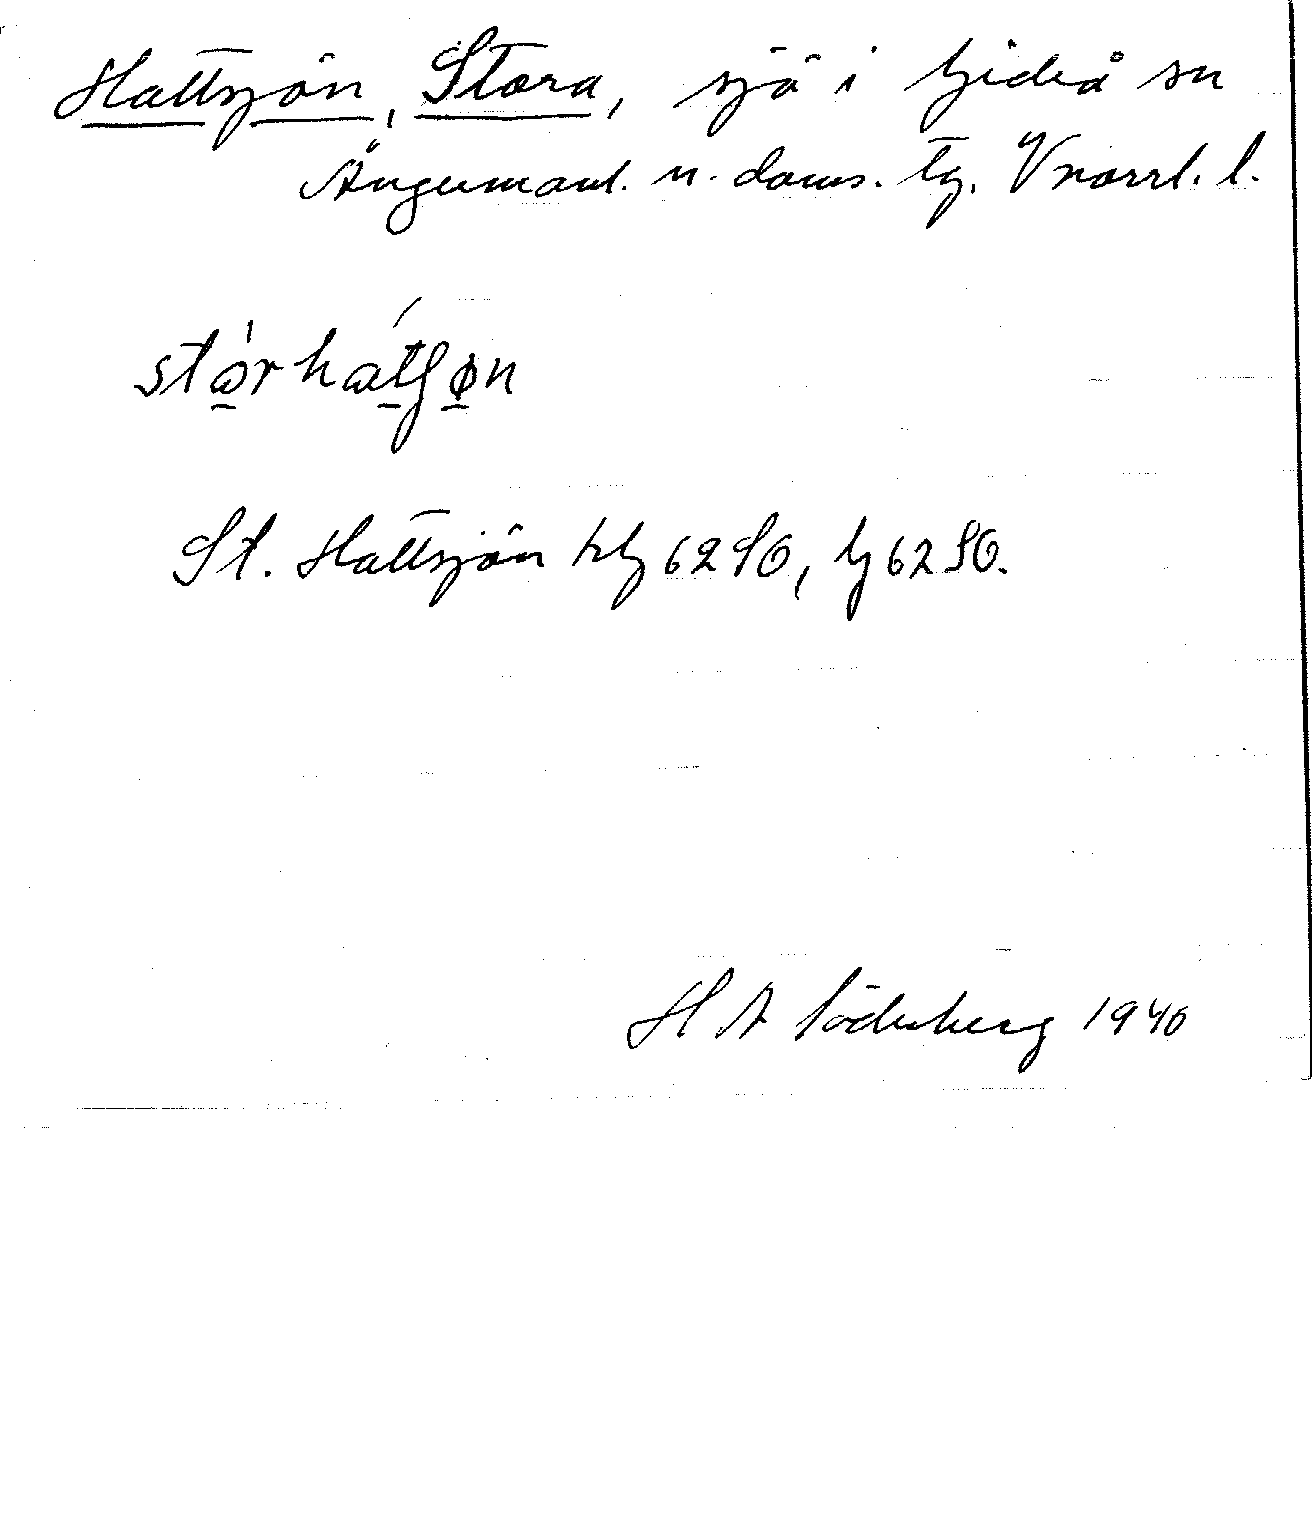 Hattsjön, Stora, sjö i Gideå sn
Ångermanl. n. doms. tg. Vnorrl. l.
stòrhátʃøn
St. Hattsjön tlg 62 SO, lg 62 SO.
H A Söderberg 1940